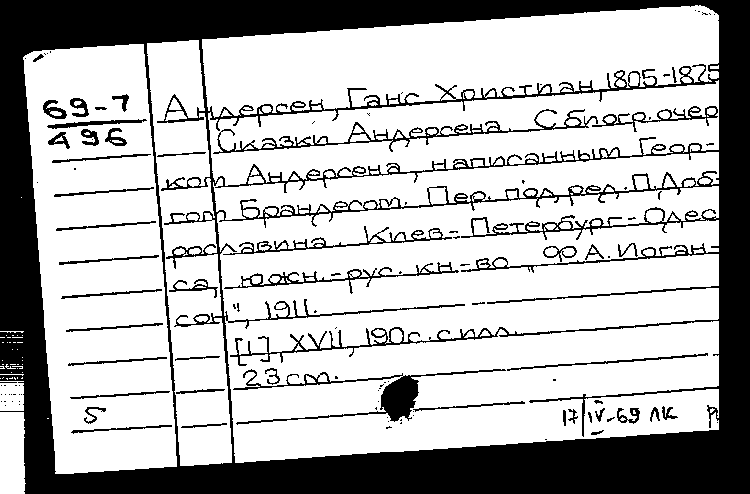 69-7
496
Андерсен, Ганс Христиан, 1805-1875
Сказки Андерсена. С биогр. очер
ком Андерсена, написанным Геор-
гом Брандесом. Пер. под ред. П. Доб-
рославина. Киев-Петербург-Одес
са, южн.-рус. кн.-во „Ф.А. Иоган-
сон", 1911.
[1], XVII, 190 с. с илл.
23 см.
5
17/IV-69 ЛК